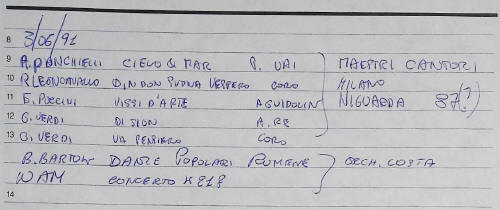 8 3/06/91
9 A. PONCHIELLI CIELO & MAR P. VAI MAESTRI CANTORI
10 R. LEONCAVALLO DIN DON SUONA VESPERO CORO MILANO
11 G. PUCCINI VISSI D'ARTE A GUIDOLIN NIGUARDA 87(?)
12 G. VERDI DI SION A. RE
13 G. VERDI VA PENSIERO CORO
B. BARTOK DANZE POPOLARI RUMENE ORCH. COSTA
WAM CONCERTO K
14